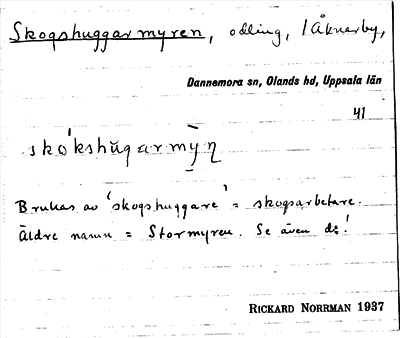 Skogshuggarmyren, odling, i Åknarby,
Dannemora sn, Olands hd, Uppsala län
41
skókshŭgarmȳṇ
Brukas av 'skogshuggare' = skogsarbetare.
Äldre namn = Stormyren. Se även d:o!
RICKARD NORRMAN 1937